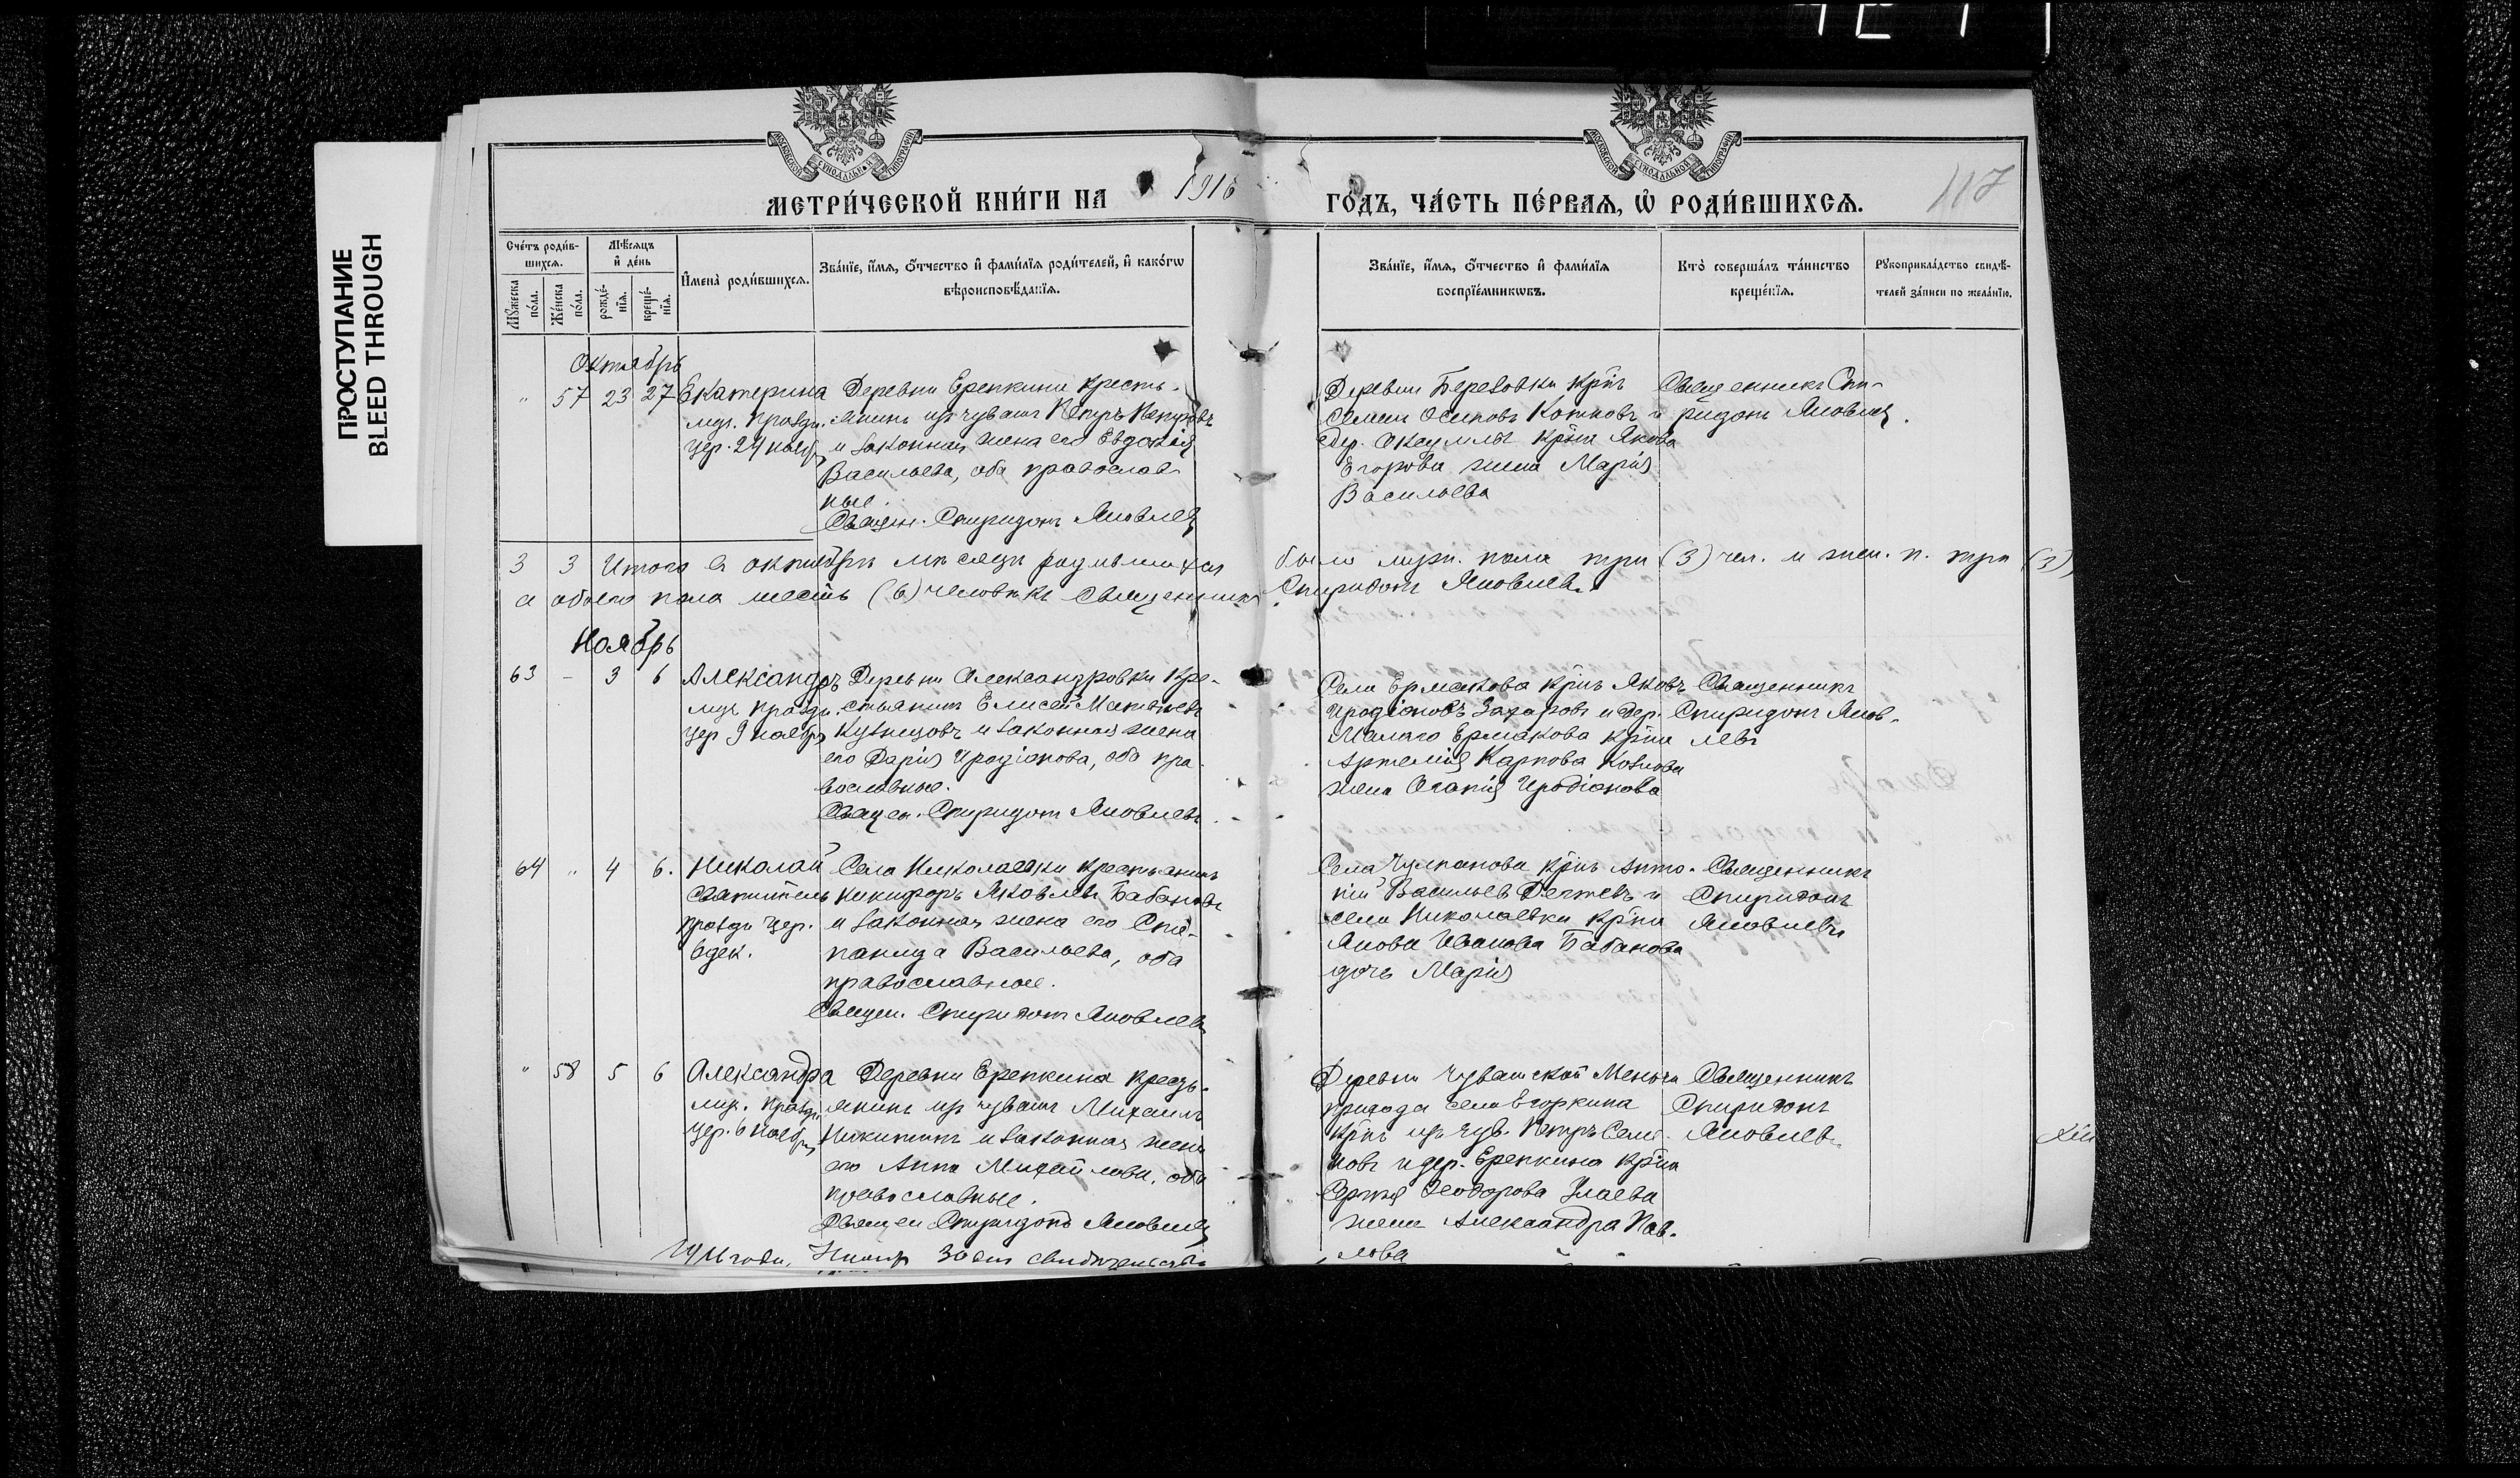 ПРОСТУПАНИЕ
BLEED THROUGH
МЕТРИ́ЧЕСКОЙ КНИ́ГИ НА 1916 ГО́ДЪ, ЧА́СТЬ ПЕ́РВАЯ, Ѡ҆ РОДИ́ВШИХСЯ.
117
Сче́тъ роди́в-
шихсѧ.
Мꙋ́жеска по́ла.
Же́нска по́ла.
Мѣ́сѧцъ и҆ де́нь
рожде́-
нїѧ.
креще́-
нїѧ.
И҆мена̀ роди́вшихсѧ.
Зва́нїе, и҆́мѧ, ѻ҆́тчество и҆ фами́лїѧ роди́телей, и҆ како́гѡ
вѣроисповѣ́данїѧ.
Зва́нїе, и҆́мѧ, ѻ҆́тчество и҆ фами́лїѧ
воспрїе́мникѡвъ.
Кто̀ соверша́лъ та́инство
креще́нїѧ.
Рꙋкоприкла́дство свидѣ́-
телей за́писи по жела́нїю.
Октябрь
" 57 23 27 Екатерина
муч. праздн.
цер. 24 нояб.
Деревни Ерепкины кресть-
янинъ изъ чувашъ Петръ Петровъ
и законная жена его Евдокія
Васильева, оба православ-
ные.
Священ. Спиридонъ Яковлевъ
Деревни Березовки кр̃нъ
Семенъ Осиповъ Котковъ и
дер. кр̃на Якова
Егорова жена Марія
Васильева
Священникъ Спи-
ридонъ Яковлевъ.
3 3 Итого въ октябрѣ мѣсяцѣ родившихся было муж. пола три (3) чел. и жен. п. три (3),
а обоего пола шесть (6) человѣкъ Священникъ Спиридонъ Яковлевъ.
Ноябрь
63 – 3 6 Александръ
муч. праздн.
цер 9 ноябр
Деревни Александровки кре-
стьянинъ Елисей Матвѣевъ
Кузнецовъ и законная жена
его Дарія Иродіонова, оба пра-
вославные.
Священ. Спиридонъ Яковлевъ
Села Ермакова кр̃нъ Яковъ
Иродіоновъ Захаровъ и дер.
Малаго Ермакова кр̃на
Артемія Карпова Козлова
жена Агапія Иродіонова
Священникъ
Спиридонъ Яков-
левъ
64 " 4 6. Николай
Святитель
праздн цер.
6 дек.
Села Николаевки крестьянинъ
Никифоръ Яковлевъ Бабановъ
и законная жена его Сте-
панида Васильева, оба
православные.
Священ. Спиридонъ Яковлевъ
Села Чулпанова кр̃нъ Анто-
ній Васильевъ Дегтевъ и
села Николаевки кр̃на
Якова Иванова Бабанова
дочь Марія
Священникъ
Спиридонъ
Яковлевъ
" 58 5 6 Александра
муч. праздн.
цер. 6 нояб.
Деревни Ерепкина кресть-
янинъ изъ чувашъ Михаилъ
Никитинъ и законная жена
его Анна Михайлова, оба
православные.
Священ Спиридонъ Яковлевъ
Деревни Чувашской Менчи
прихода села Егоркина
кр̃нъ изъ чув. Петръ Семе-
новъ и дер. Ерепкина кр̃на
Сергѣя Ѳеодорова Улаева
жена Александра Пав-
лова
Священникъ
Спиридонъ
Яковлевъ
года,